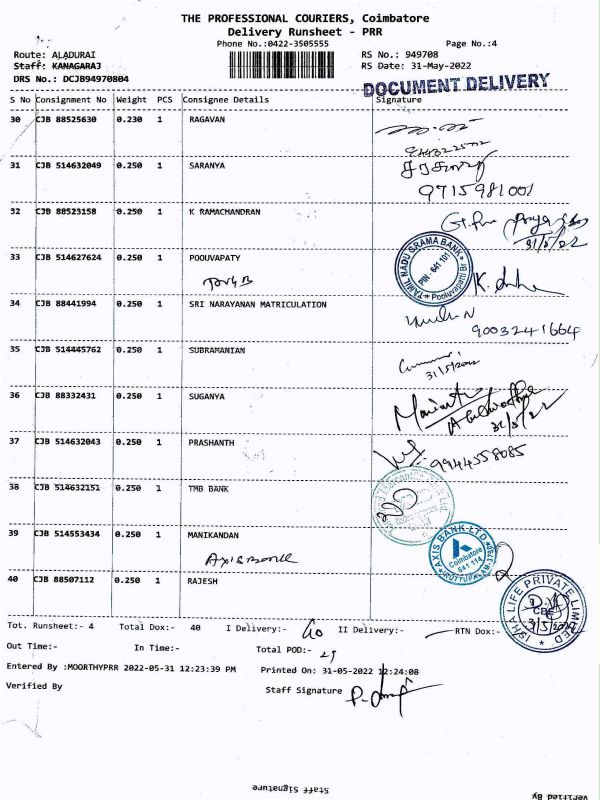 THE PROFESSIONAL COURIERS, Coimbatore
Delivery Runsheet - PRR
Phone No.:0422-3505555 Page No.:4
Route: ALADURAI RS No.: 949708
Staff: KANAGARAJ RS Date: 31-May-2022
DRS No.: DCJB94970804
DOCUMENT DELIVERY
S No Consignment No Weight PCS Consignee Details Signature
30 CJB 88525630 0.230 1 RAGAVAN
31 CJB 514632049 0.250 1 SARANYA
9715981001
32 CJB 88523158 0.250 1 K RAMACHANDRAN
31/5/22
33 CJB 514627624 0.250 1 POOUVAPATY
TAMIL NADU GRAMA BANK
PIN - 641 101
Pooluvapatti Br
34 CJB 88441994 0.250 1 SRI NARAYANAN MATRICULATION
9003241664
35 CJB 514445762 0.250 1 SUBRAMANIAN
31/5/2022
36 CJB 88332431 0.250 1 SUGANYA
31/5/22
37 CJB 514632043 0.250 1 PRASHANTH
9944558085
38 CJB 514632151 0.250 1 TMB BANK
39 CJB 514553434 0.250 1 MANIKANDAN
Axis Bank
AXIS BANK LTD.
Coimbatore
641 114
40 CJB 88507112 0.250 1 RAJESH
ISHA LIFE PRIVATE LIMITED
CBE
Tot. Runsheet:- 4 Total Dox:- 40 I Delivery:- 40 II Delivery:- RTN Dox:-
Out Time:- In Time:- Total POD:- 29
Entered By :MOORTHYPRR 2022-05-31 12:23:39 PM Printed On: 31-05-2022 12:24:08
Verified By Staff Signature
Staff Signature
Verified By